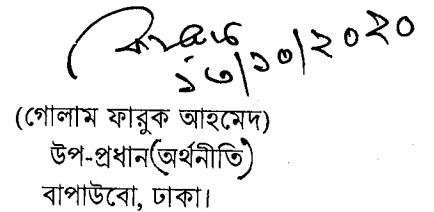 ১৩/১০/২০২০
(গোলাম ফারুক আহমেদ)
উপ-প্রধান(অর্থনীতি)
বাপাউবো, ঢাকা।